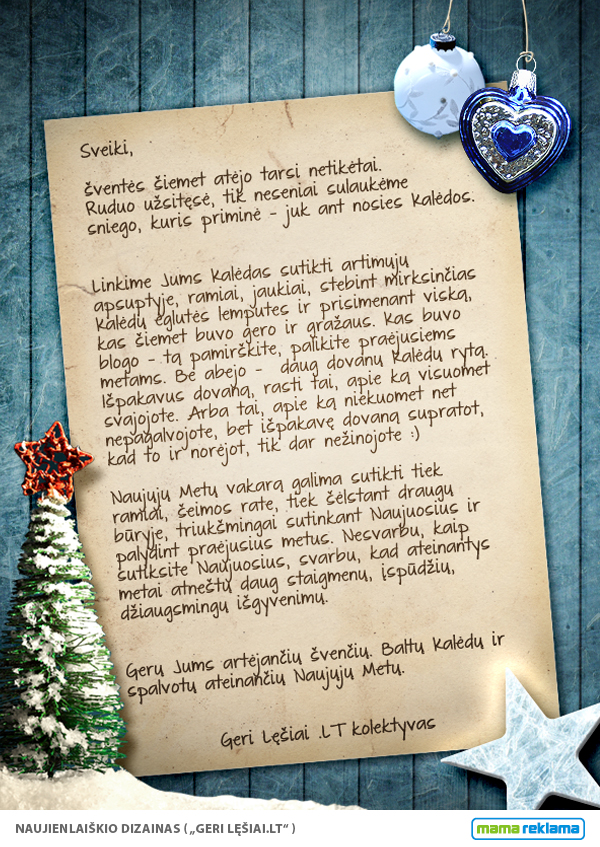 Sveiki,
šventės šiemet atėjo tarsi netikėtai.
Ruduo užsitęsė, tik neseniai sulaukėme
sniego, kuris priminė - juk ant nosies Kalėdos.
Linkime Jums Kalėdas sutikti artimųjų
apsuptyje, ramiai, jaukiai, stebint mirksinčias
Kalėdų eglutės lemputes ir prisimenant viską,
kas šiemet buvo gero ir gražaus. Kas buvo
blogo - tą pamirškite, palikite praėjusiems
metams. Be abejo - daug dovanų Kalėdų rytą.
Išpakavus dovaną, rasti tai, apie ką visuomet
svajojote. Arba tai, apie ką niekuomet net
nepagalvojote, bet išpakavę dovaną supratot,
kad to ir norėjot, tik dar nežinojote :)
Naujųjų Metų vakarą galima sutikti tiek
ramiai, šeimos rate, tiek šėlstant draugų
būryje, triukšmingai sutinkant Naujuosius ir
palydint praėjusius metus. Nesvarbu, kaip
sutiksite Naujuosius, svarbu, kad ateinantys
metai atneštų daug staigmenų, įspūdžių,
džiaugsmingų išgyvenimų.
Gerų Jums artėjančių švenčių. Baltų Kalėdų ir
spalvotų ateinančių Naujųjų Metų.
Geri Lęšiai .LT kolektyvas
NAUJIENLAIŠKIO DIZAINAS ( „GERI LĘŠIAI.LT“ )
mama reklama